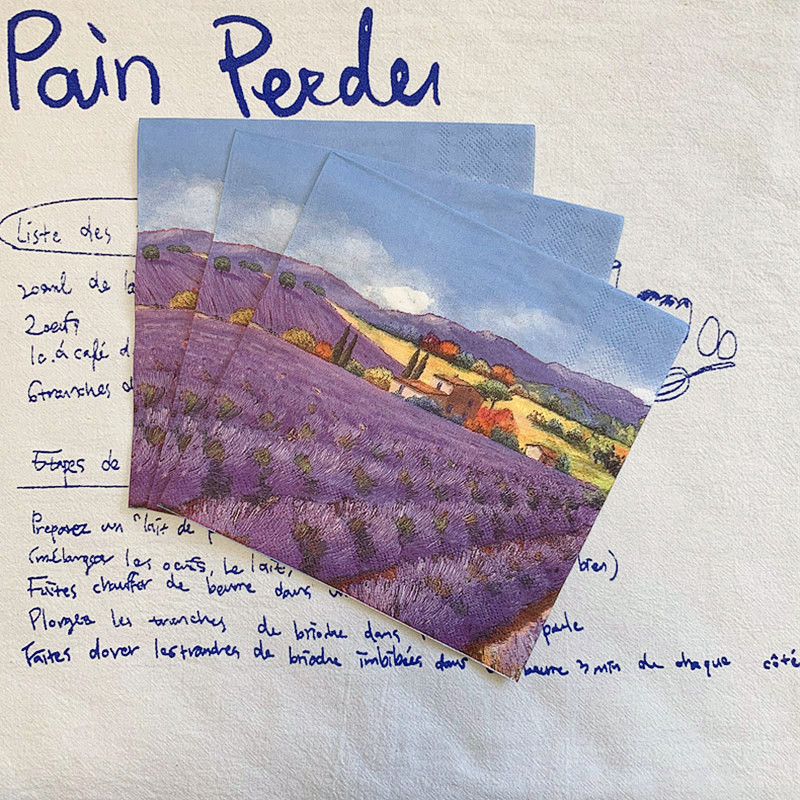 Pain Perdu
Liste des
200ml de la
2 oeufs
1c. à café d
6 tranches d
Etapes de
Préparez un "lait de p
(mélanger les oeufs, le lait, bien)
Faites chauffer de beurre dans u
Plongez les tranches de brioche dans poule
Faites dorer les tranches de brioche imbibées dans beurre 3 min de chaque côté